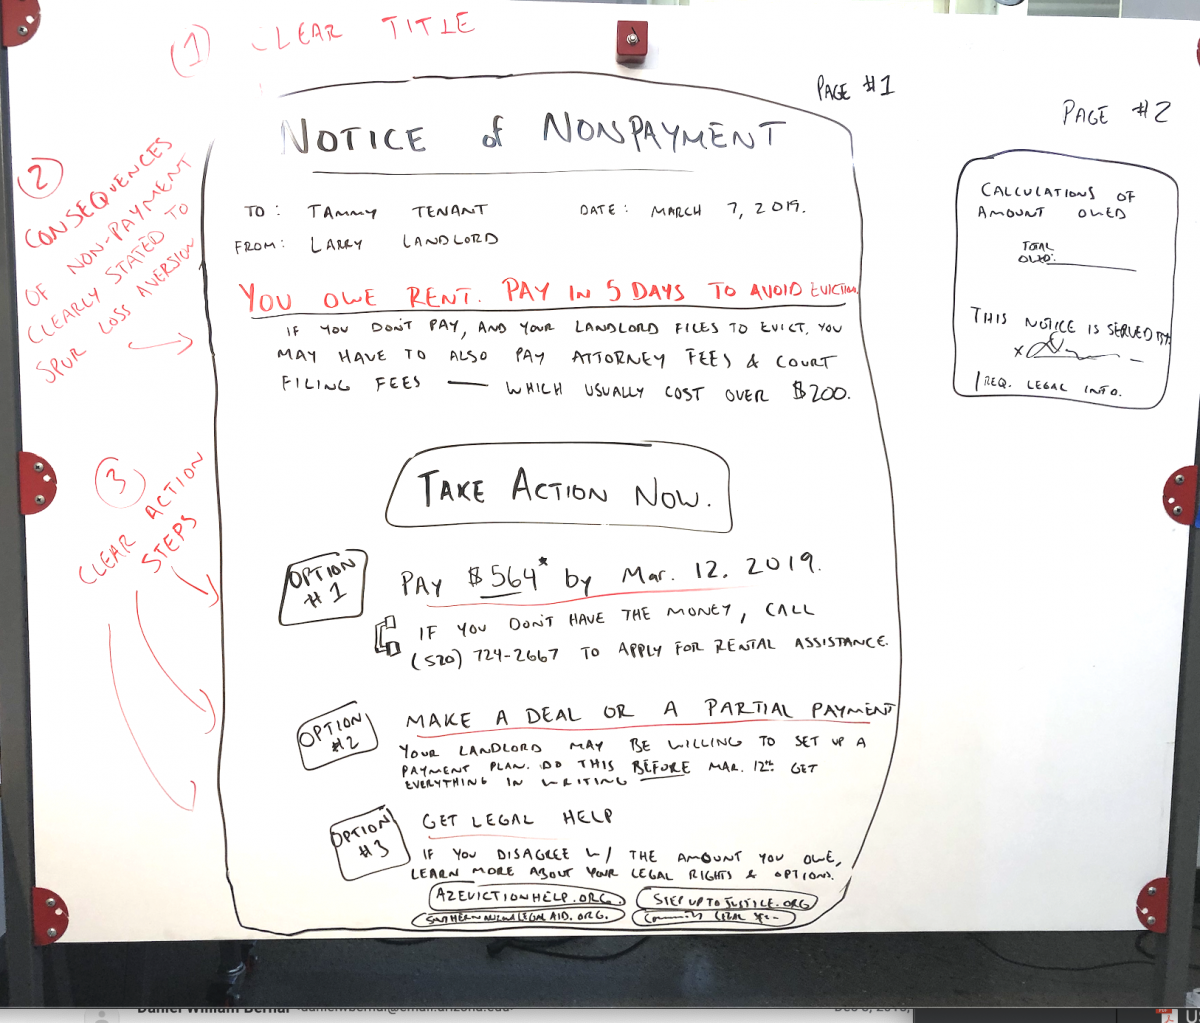 (1) CLEAR TITLE
PAGE #1
NOTICE of NONPAYMENT
TO: TAMMY TENANT DATE: MARCH 7, 2019.
FROM: LARRY LANDLORD
YOU OWE RENT. PAY IN 5 DAYS TO AVOID EVICTION
IF YOU DON'T PAY, AND YOUR LANDLORD FILES TO EVICT, YOU
MAY HAVE TO ALSO PAY ATTORNEY FEES & COURT
FILING FEES — WHICH USUALLY COST OVER $200.
TAKE ACTION NOW.
OPTION
#1
PAY $564* by Mar. 12, 2019.
IF YOU DON'T HAVE THE MONEY, CALL
(520) 724-2667 TO APPLY FOR RENTAL ASSISTANCE.
OPTION
#2
MAKE A DEAL OR A PARTIAL PAYMENT
YOUR LANDLORD MAY BE WILLING TO SET UP A
PAYMENT PLAN. DO THIS BEFORE MAR. 12th. GET
EVERYTHING IN WRITING
OPTION
#3
GET LEGAL HELP
IF YOU DISAGREE W/ THE AMOUNT YOU OWE,
LEARN MORE ABOUT YOUR LEGAL RIGHTS & OPTIONS.
AZEVICTIONHELP.ORG
STEPUPTOJUSTICE.ORG
LEGALAID.ORG.
LEGAL
2
CONSEQUENCES
OF NON-PAYMENT
CLEARLY STATED TO
SPUR LOSS AVERSION
3
CLEAR ACTION
STEPS
PAGE #2
CALCULATIONS OF
AMOUNT OWED
TOTAL
OWED:
THIS NOTICE IS SERVED BY:
x
REQ. LEGAL INFO.
Daniel William Bernal